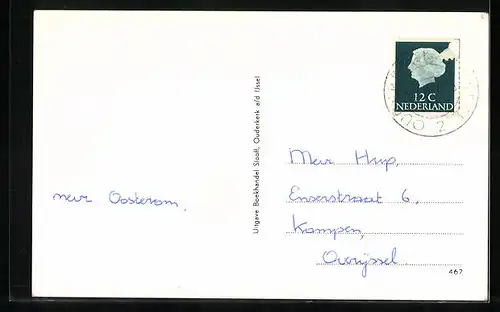 12 C
NEDERLAND
2
Uitgave Boekhandel Slooff, Ouderkerk a/d IJssel
Mevr Hup,
6,
Kampen,
Overijssel
mevr Oosterom.
467